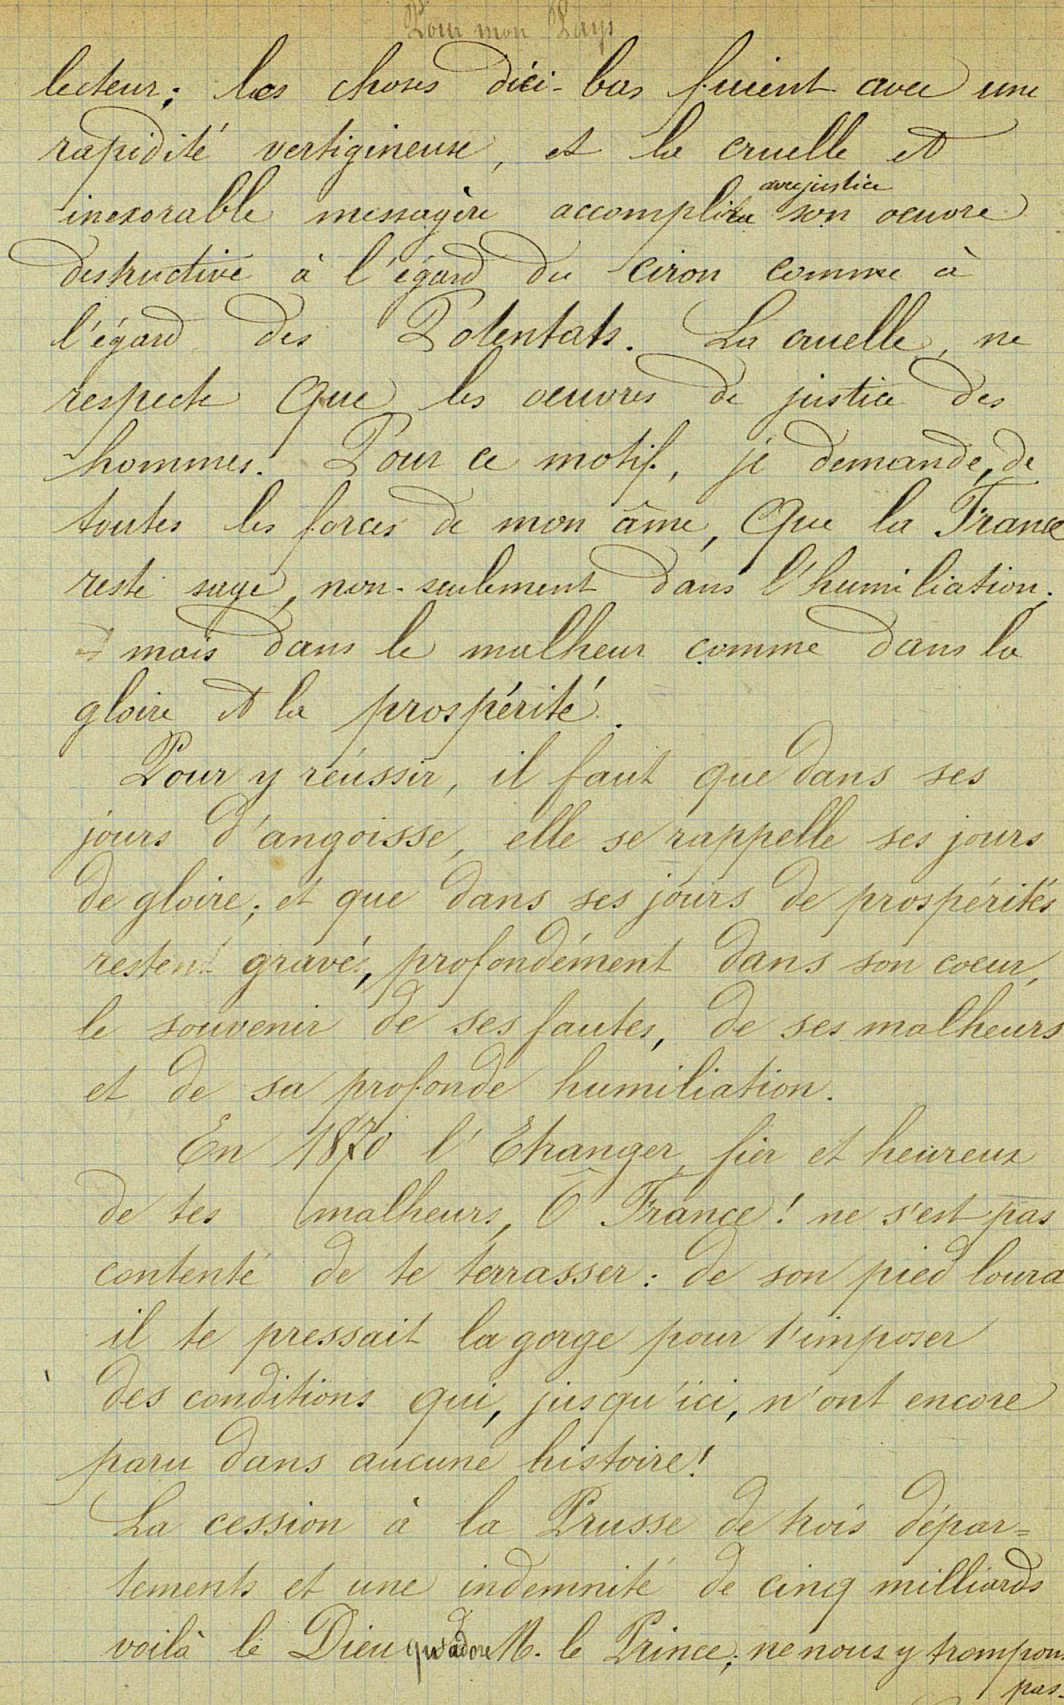 Pour mon Pays
lecteur; les choses d'ici-bas fuient avec une
rapidité vertigineuse, et la cruelle et
avec justice
inexorable messagère accomplira son oeuvre
destructive à l'égard du ciron comme à
l'égard des Potentats. La cruelle, ne
respecte que les oeuvres de justice des
hommes. Pour ce motif, je demande, de
toutes les forces de mon âme, que la France
reste sage, non-seulement dans l'humiliation,
mais dans le malheur comme dans la
gloire et la prospérité.
Pour y réussir, il faut que dans ses
jours d'angoisse, elle se rappelle ses jours
de gloire; et que dans ses jours de prospérités
restent gravés, profondément dans son coeur,
le souvenir de ses fautes, de ses malheurs
et de sa profonde humiliation.
En 1870 l'Etranger, fier et heureux
de tes malheurs, Ô France! ne s'est pas
contenté de te terrasser: de son pied lourd
il te pressait la gorge pour t'imposer
des conditions qui, jusqu'ici, n'ont encore
paru dans aucune histoire!
La cession à la Prusse de trois dépar=
tements et une indemnité de cinq milliards
voilà le Dieu qu'adore M. le Prince; ne nous y trompons
pas.